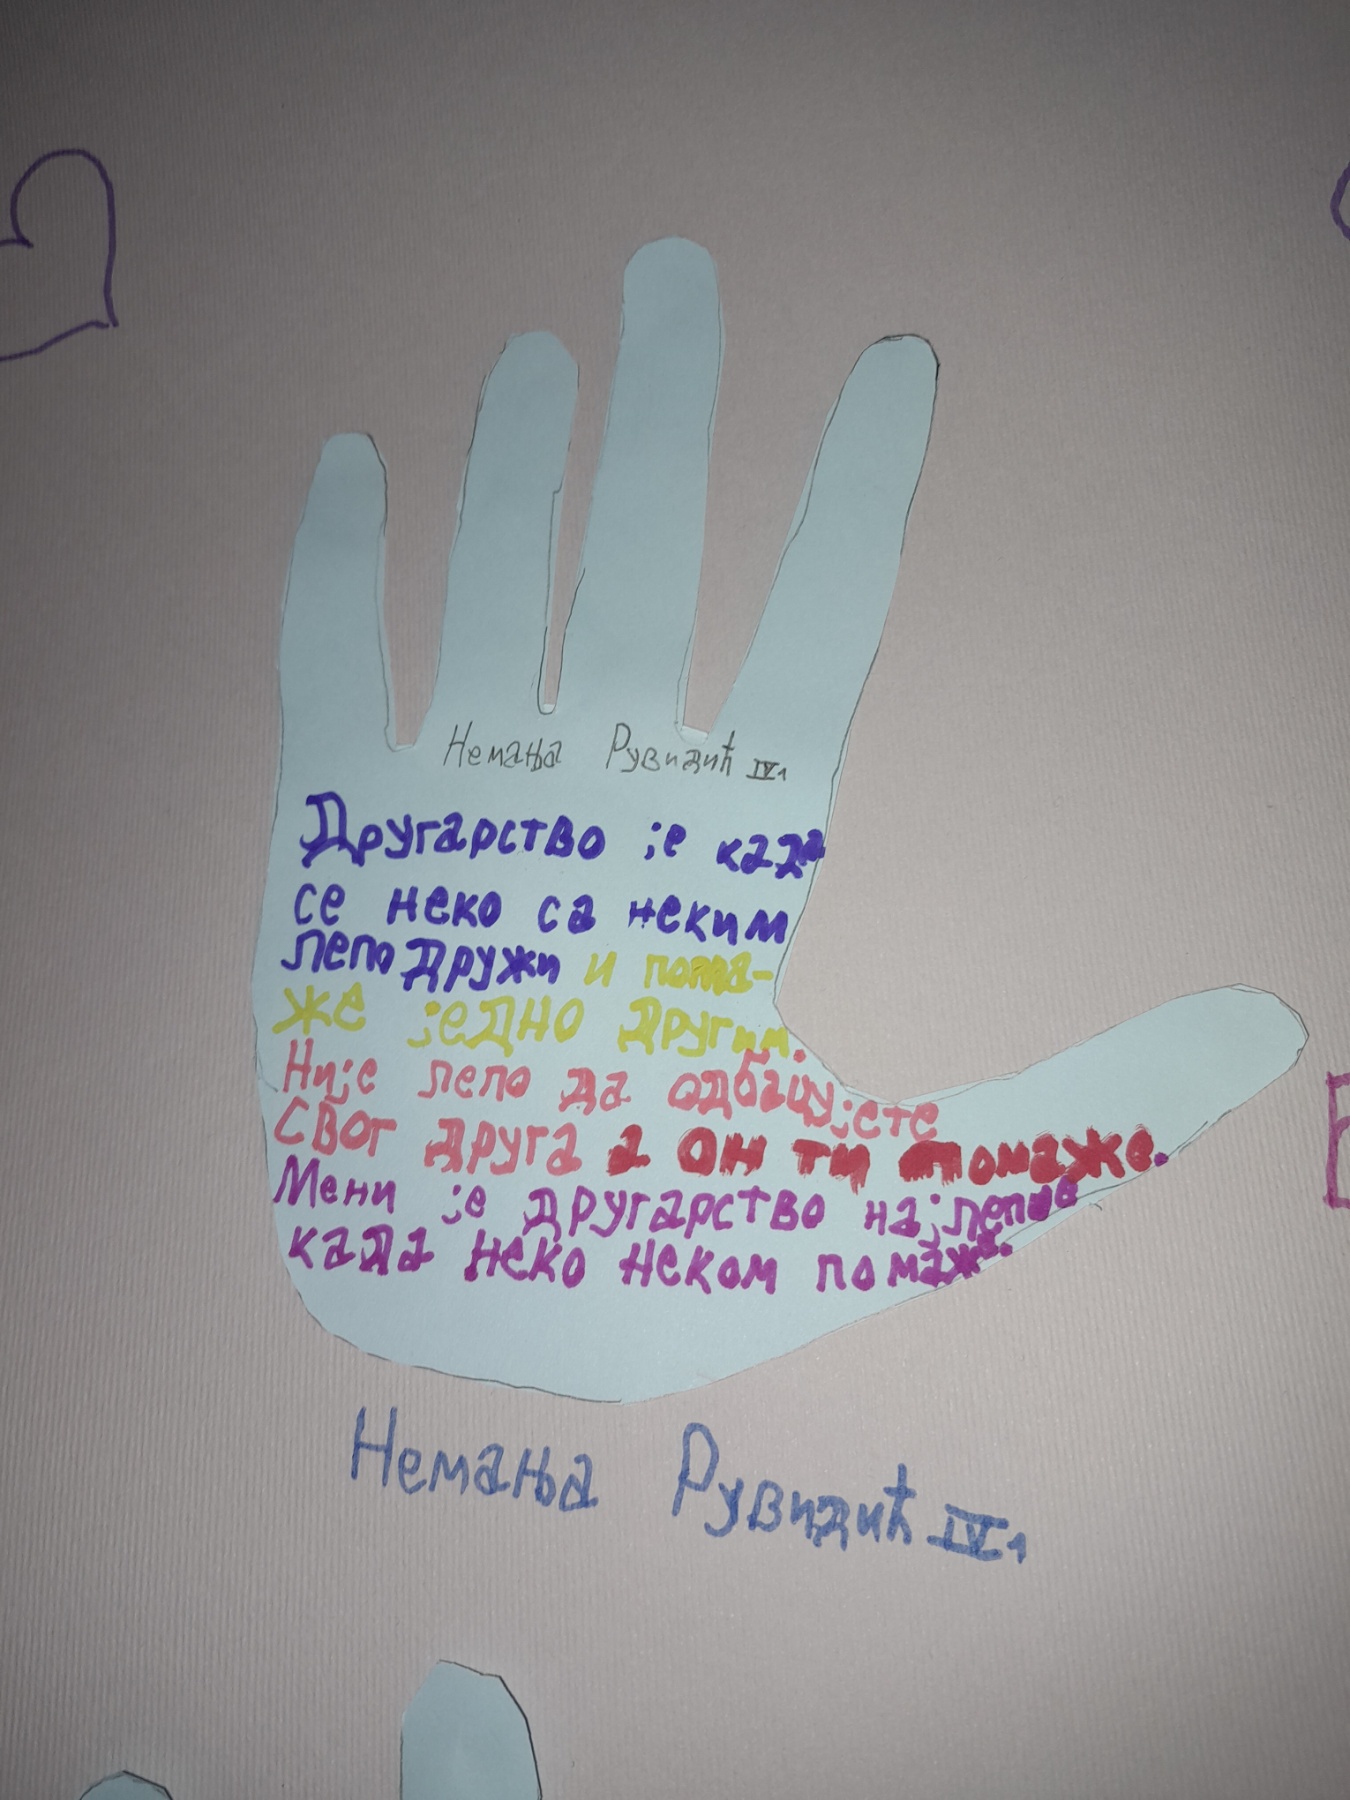 Немања Рувидић IV1
Другарство је када
се неко са неким
лепо дружи и пома-
же једно другим.
Није лепо да одбацујете
свог друга а он ти помаже.
Мени је другарство најлепше
када неко неком помаже.
Немања Рувидић IV1